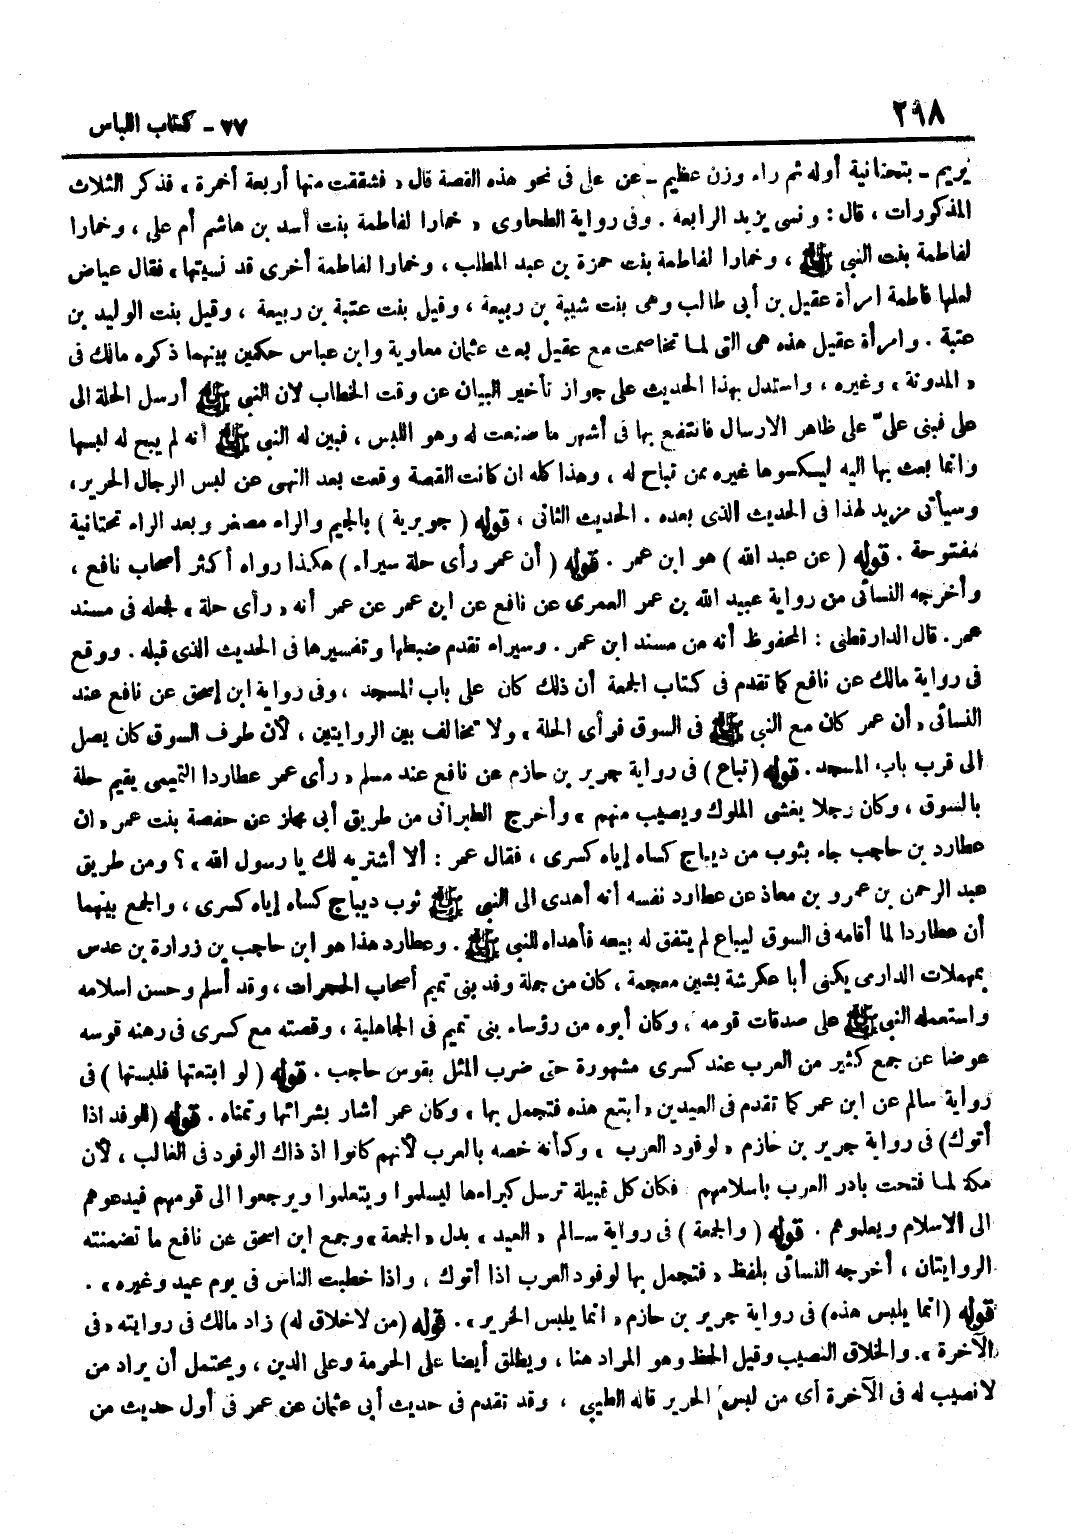 ٢٩٨
٧٧ - كتاب اللباس
يريم - بتحتانية أوله ثم راء وزن عظيم - عن على فى نحو هذه القصة قال « فشققت منها أربعة أخمرة ، فذكر الثلاث
المذكورات ، قال : ونسى يزيد الرابعة . وفى رواية الطحاوى « خمارا لفاطمة بنت أسد بن هاشم أم على ، وخمارا
لفاطمة بنت النبى ﷺ ، وخمارا لفاطمة بنت حمزة بن عبد المطلب ، وخمارا لفاطمة أخرى قد نسيتها » فقال عياض
لعلها فاطمة امرأة عقيل بن أبى طالب وهى بنت شيبة بن ربيعة ، وقيل بنت عتبة بن ربيعة ، وقيل بنت الوليد بن
عتبة . وامرأة عقيل هذه هى التى لما تخاصمت مع عقيل بعث عثمان معاوية وابن عباس حكمين بينهما ذكره مالك فى
« المدونة » وغيره ، واستدل بهذا الحديث على جواز تأخير البيان عن وقت الخطاب لان النبى ﷺ أرسل الحلة الى
على فبنى علىّ على ظاهر الارسال فانتفع بها فى أشهر ما صنعت له وهو اللبس ، فبين له النبى ﷺ أنه لم يبح له لبسها
وانما بعث بها اليه ليكسوها غيره ممن تباح له ، وهذا كله ان كانت القصة وقعت بعد النهى عن لبس الرجال الحرير ،
وسيأتى مزيد لهذا فى الحديث الذى بعده . الحديث الثانى ، قوله ( جويرية ) بالجيم والراء مصغر وبعد الراء تحتانية
مفتوحة . قوله ( عن عبد الله ) هو ابن عمر . قوله ( أن عمر رأى حلة سيراء ) هكذا رواه أكثر أصحاب نافع ،
وأخرجه النسائى من رواية عبيد الله بن عمر العمرى عن نافع عن ابن عمر عن عمر أنه « رأى حلة » فجعله فى مسند
عمر . قال الدارقطنى : المحفوظ أنه من مسند ابن عمر . وسيراء تقدم ضبطها وتفسيرها فى الحديث الذى قبله . ووقع
فى رواية مالك عن نافع كما تقدم فى كتاب الجمعة أن ذلك كان على باب المسجد ، وفى رواية ابن إسحق عن نافع عند
النسائى « أن عمر كان مع النبى ﷺ فى السوق فرأى الحلة » ولا تخالف بين الروايتين ، لأن طرف السوق كان يصل
الى قرب باب المسجد . قوله (تباع) فى رواية جرير بن حازم عن نافع عند مسلم « رأى عمر عطاردا التميمى يقيم حلة
بالسوق ، وكان رجلا يغشى الملوك ويصيب منهم » وأخرج الطبرانى من طريق أبى مجلز عن حفصة بنت عمر « ان
عطارد بن حاجب جاء بثوب من ديباج كساه إياه كسرى ، فقال عمر : ألا أشتريه لك يا رسول الله » ؟ ومن طريق
عبد الرحمن بن عمرو بن معاذ عن عطارد نفسه أنه أهدى الى النبى ﷺ ثوب ديباج كساه إياه كسرى ، والجمع بينهما
أن عطاردا لما أقامه فى السوق ليباع لم يتفق له بيعه فأهداه للنبى ﷺ . وعطارد هذا هو ابن حاجب بن زرارة بن عدس
بمهملات الدارمى يكنى أبا عكرشة بشين معجمة ، كان من جملة وفد بنى تميم أصحاب الحجرات ، وقد أسلم وحسن اسلامه
واستعمله النبى ﷺ على صدقات قومه ، وكان أبوه من رؤساء بنى تميم فى الجاهلية ، وقصته مع كسرى فى رهنه قوسه
عوضا عن جمع كثير من العرب عند كسرى مشهورة حتى ضرب المثل بقوس حاجب . قوله ( لو ابتعتها فلبستها ) فى
رواية سالم عن ابن عمر كما تقدم فى العيدين « ابتع هذه فتجمل بها » وكان عمر أشار بشرائها وتمناه . قوله (للوفد اذا
أتوك) فى رواية جرير بن حازم « لوفود العرب » وكأنه خصه بالعرب لأنهم كانوا اذ ذاك الوفود فى الغالب ، لأن
مكة لما فتحت بادر العرب باسلامهم فكان كل قبيلة ترسل كبراءها ليسلموا ويتعلموا ويرجعوا الى قومهم فيدعوهم
الى الاسلام ويعلموهم . قوله ( والجمعة ) فى رواية سالم « العيد » بدل « الجمعة » وجمع ابن اسحق عن نافع ما تضمنته
الروايتان ، أخرجه النسائى بلفظ « فتجمل بها لوفود العرب اذا أتوك ، واذا خطبت الناس فى يوم عيد وغيره » .
قوله (انما يلبس هذه) فى رواية جرير بن حازم « انما يلبس الحرير » . قوله (من لا خلاق له) زاد مالك فى روايته « فى
الآخرة » . والخلاق النصيب وقيل الحظ وهو المراد هنا ، ويطلق أيضا على الحرمة وعلى الدين ، ويحتمل أن يراد من
لا نصيب له فى الآخرة أى من لبس الحرير قاله الطيبى ، وقد تقدم فى حديث أبى عثمان عن عمر فى أول حديث من